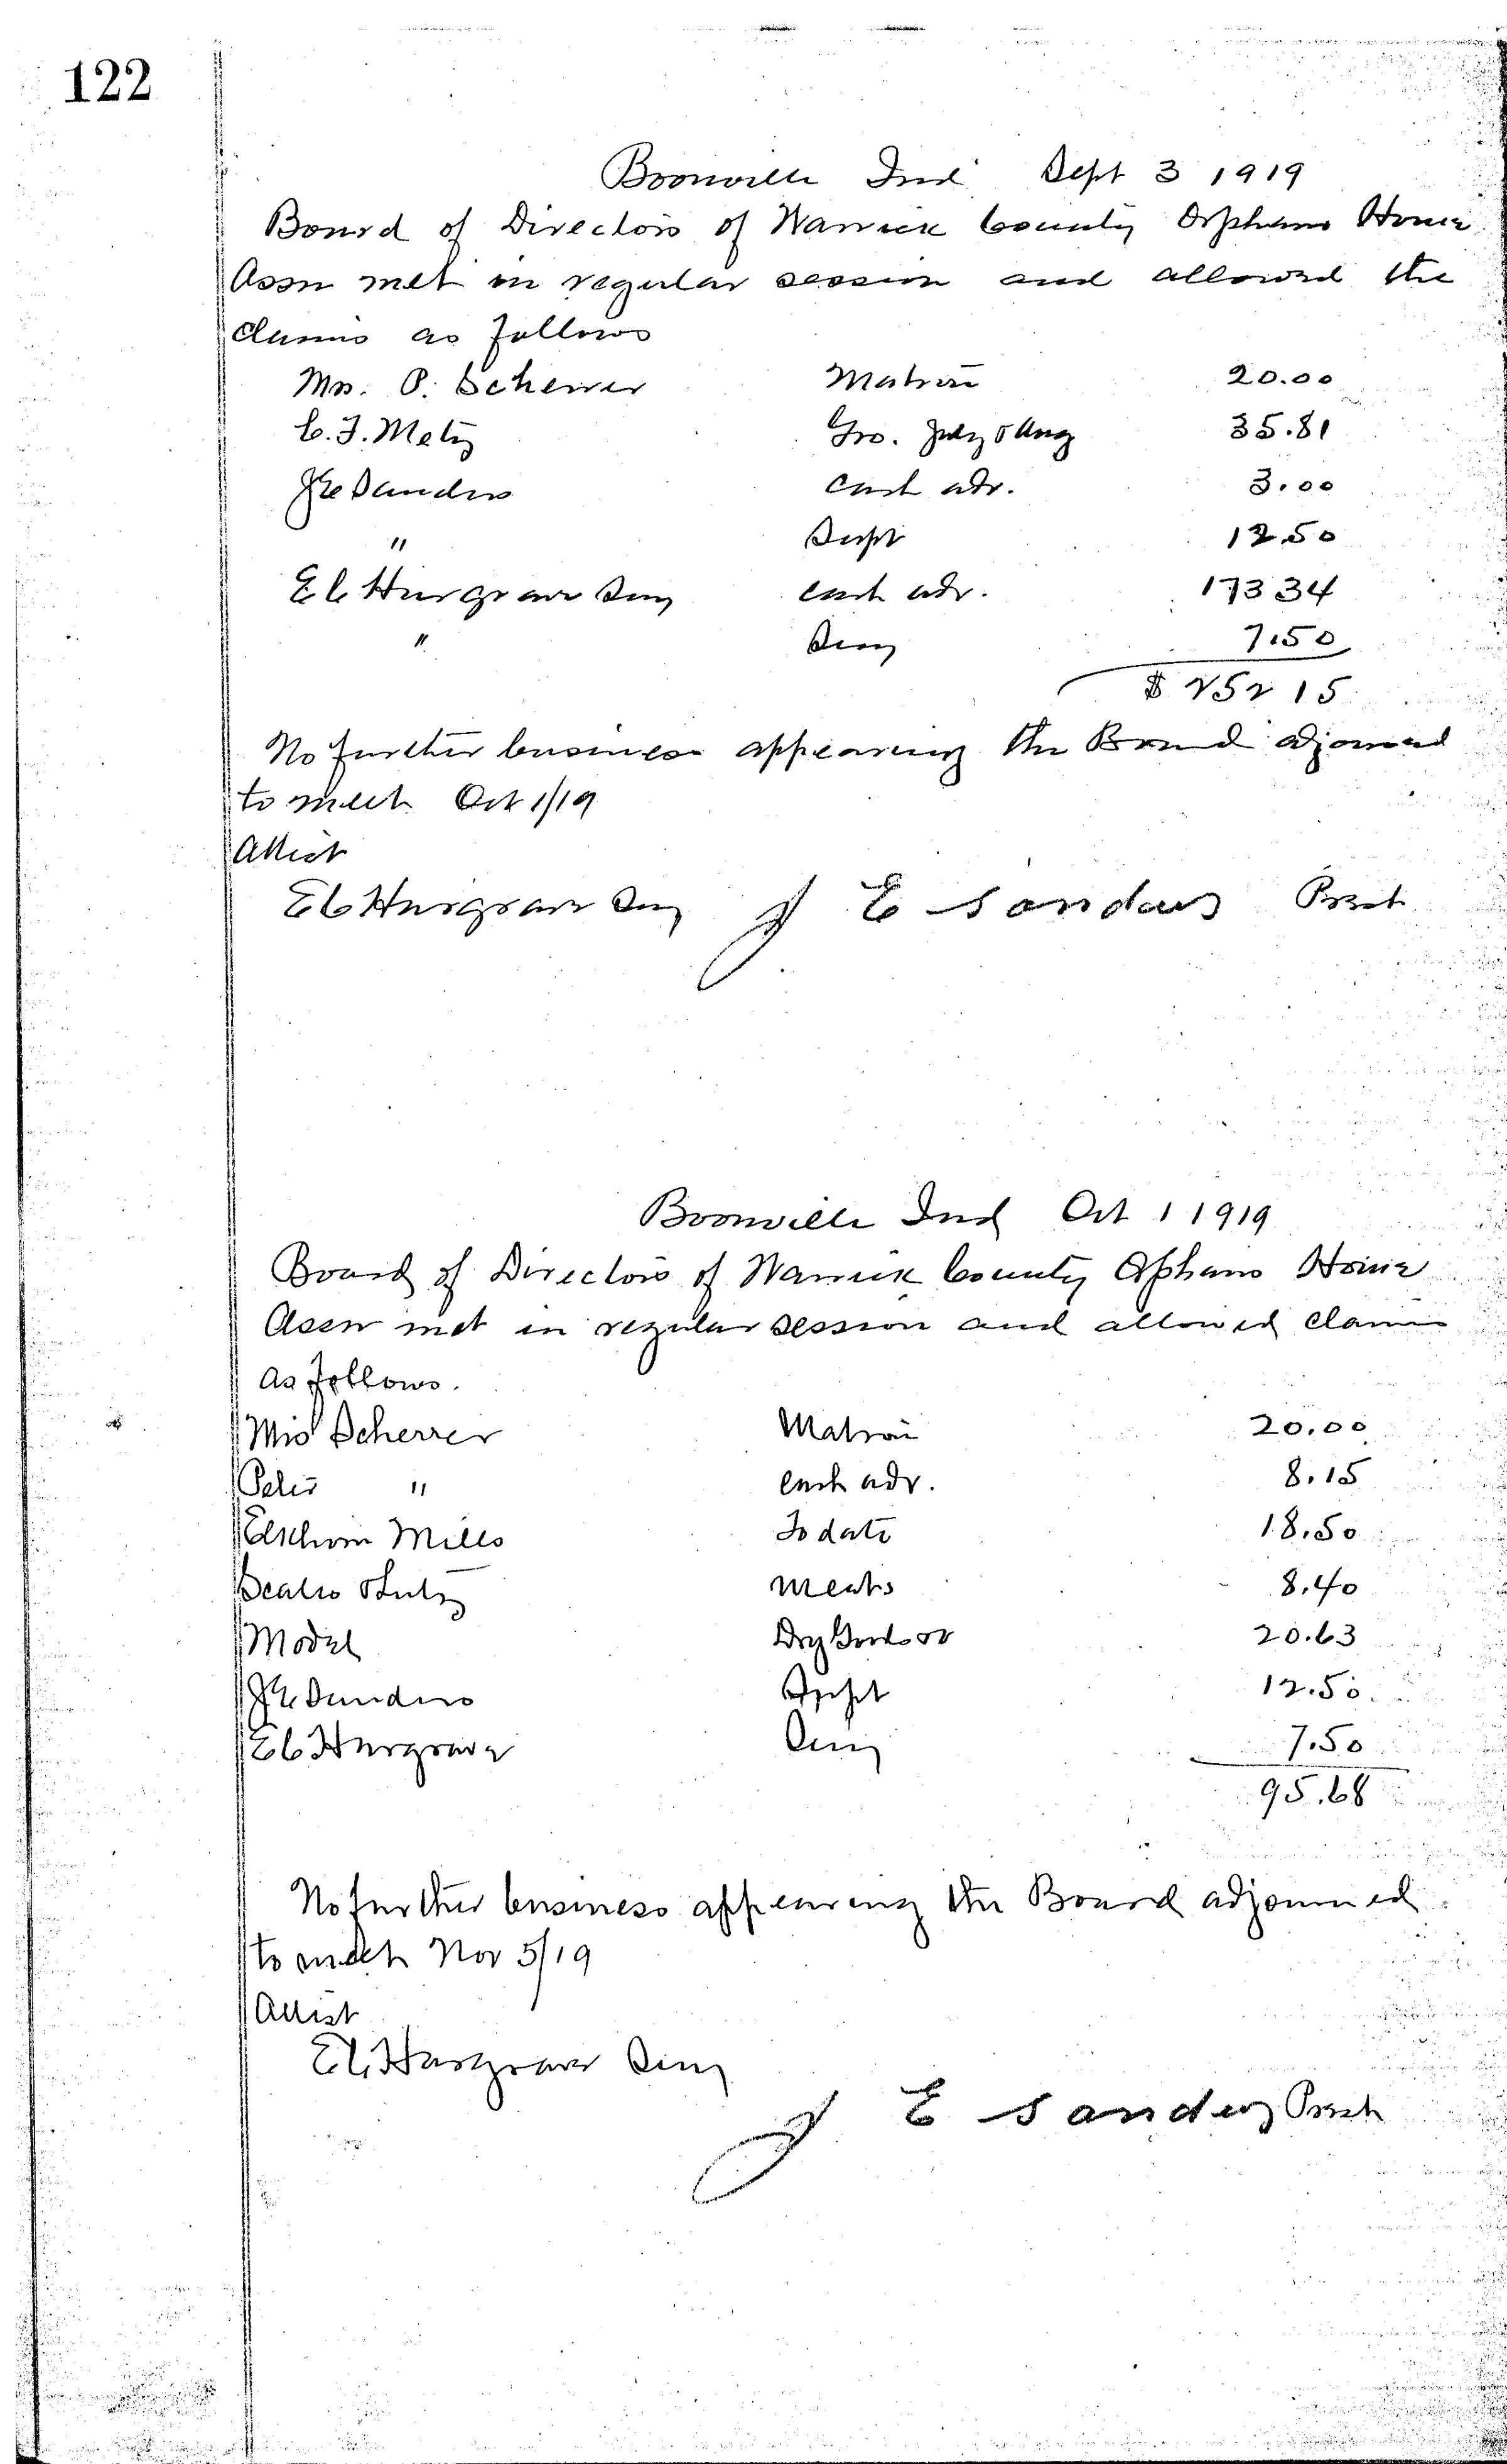 122
Boonville Ind Sept 3 1919
Board of Directors of Warrick County Orphans Home
Assn met in regular session and allowed the
claims as follows
Mrs. P. Scherrer Matron 20.00
C. F. Metz Gro. July & Aug 35.81
J E Sanders Cash adv. 3.00
" Supt 12.50
E C Hargrave Secy Cash adv. 173 34
" Secy 7.50
$ 252 15
No further business appearing the Board adjourned
to meet Oct 1/19
Attest
E C Hargrave Secy J E Sanders Prest
Boonville Ind Oct 1 1919
Board of Directors of Warrick County Orphans Home
Assn met in regular session and allowed claims
as follows.
Mrs Scherrer Matron 20.00
Peter " Cash adv. 8.15
Mills To date 18.50
meats 8.40
Model Dry Goods 20.63
J E Sanders Supt 12.50
E C Hargrave Secy 7.50
95.68
No further business appearing the Board adjourned
to meet Nov 5/19
Attest
E C Hargrave Secy
J E Sanders Prest